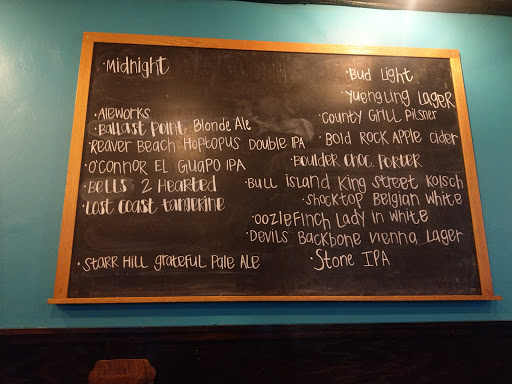 ·Midnight
·Aleworks
·Ballast Point Blonde Ale
·Reaver Beach Hoptopus Double IPA
·O'Connor El Guapo IPA
·Bells 2 Hearted
·Lost Coast Tangerine
·Starr Hill grateful Pale Ale
·Bud Light
·Yuengling Lager
·County Grill Pilsner
·Bold Rock Apple Cider
·Boulder Choc. Porter
·Bull Island King Street Kolsch
·Shocktop Belgian White
·Oozlefinch Lady in White
·Devils Backbone Vienna Lager
·Stone IPA